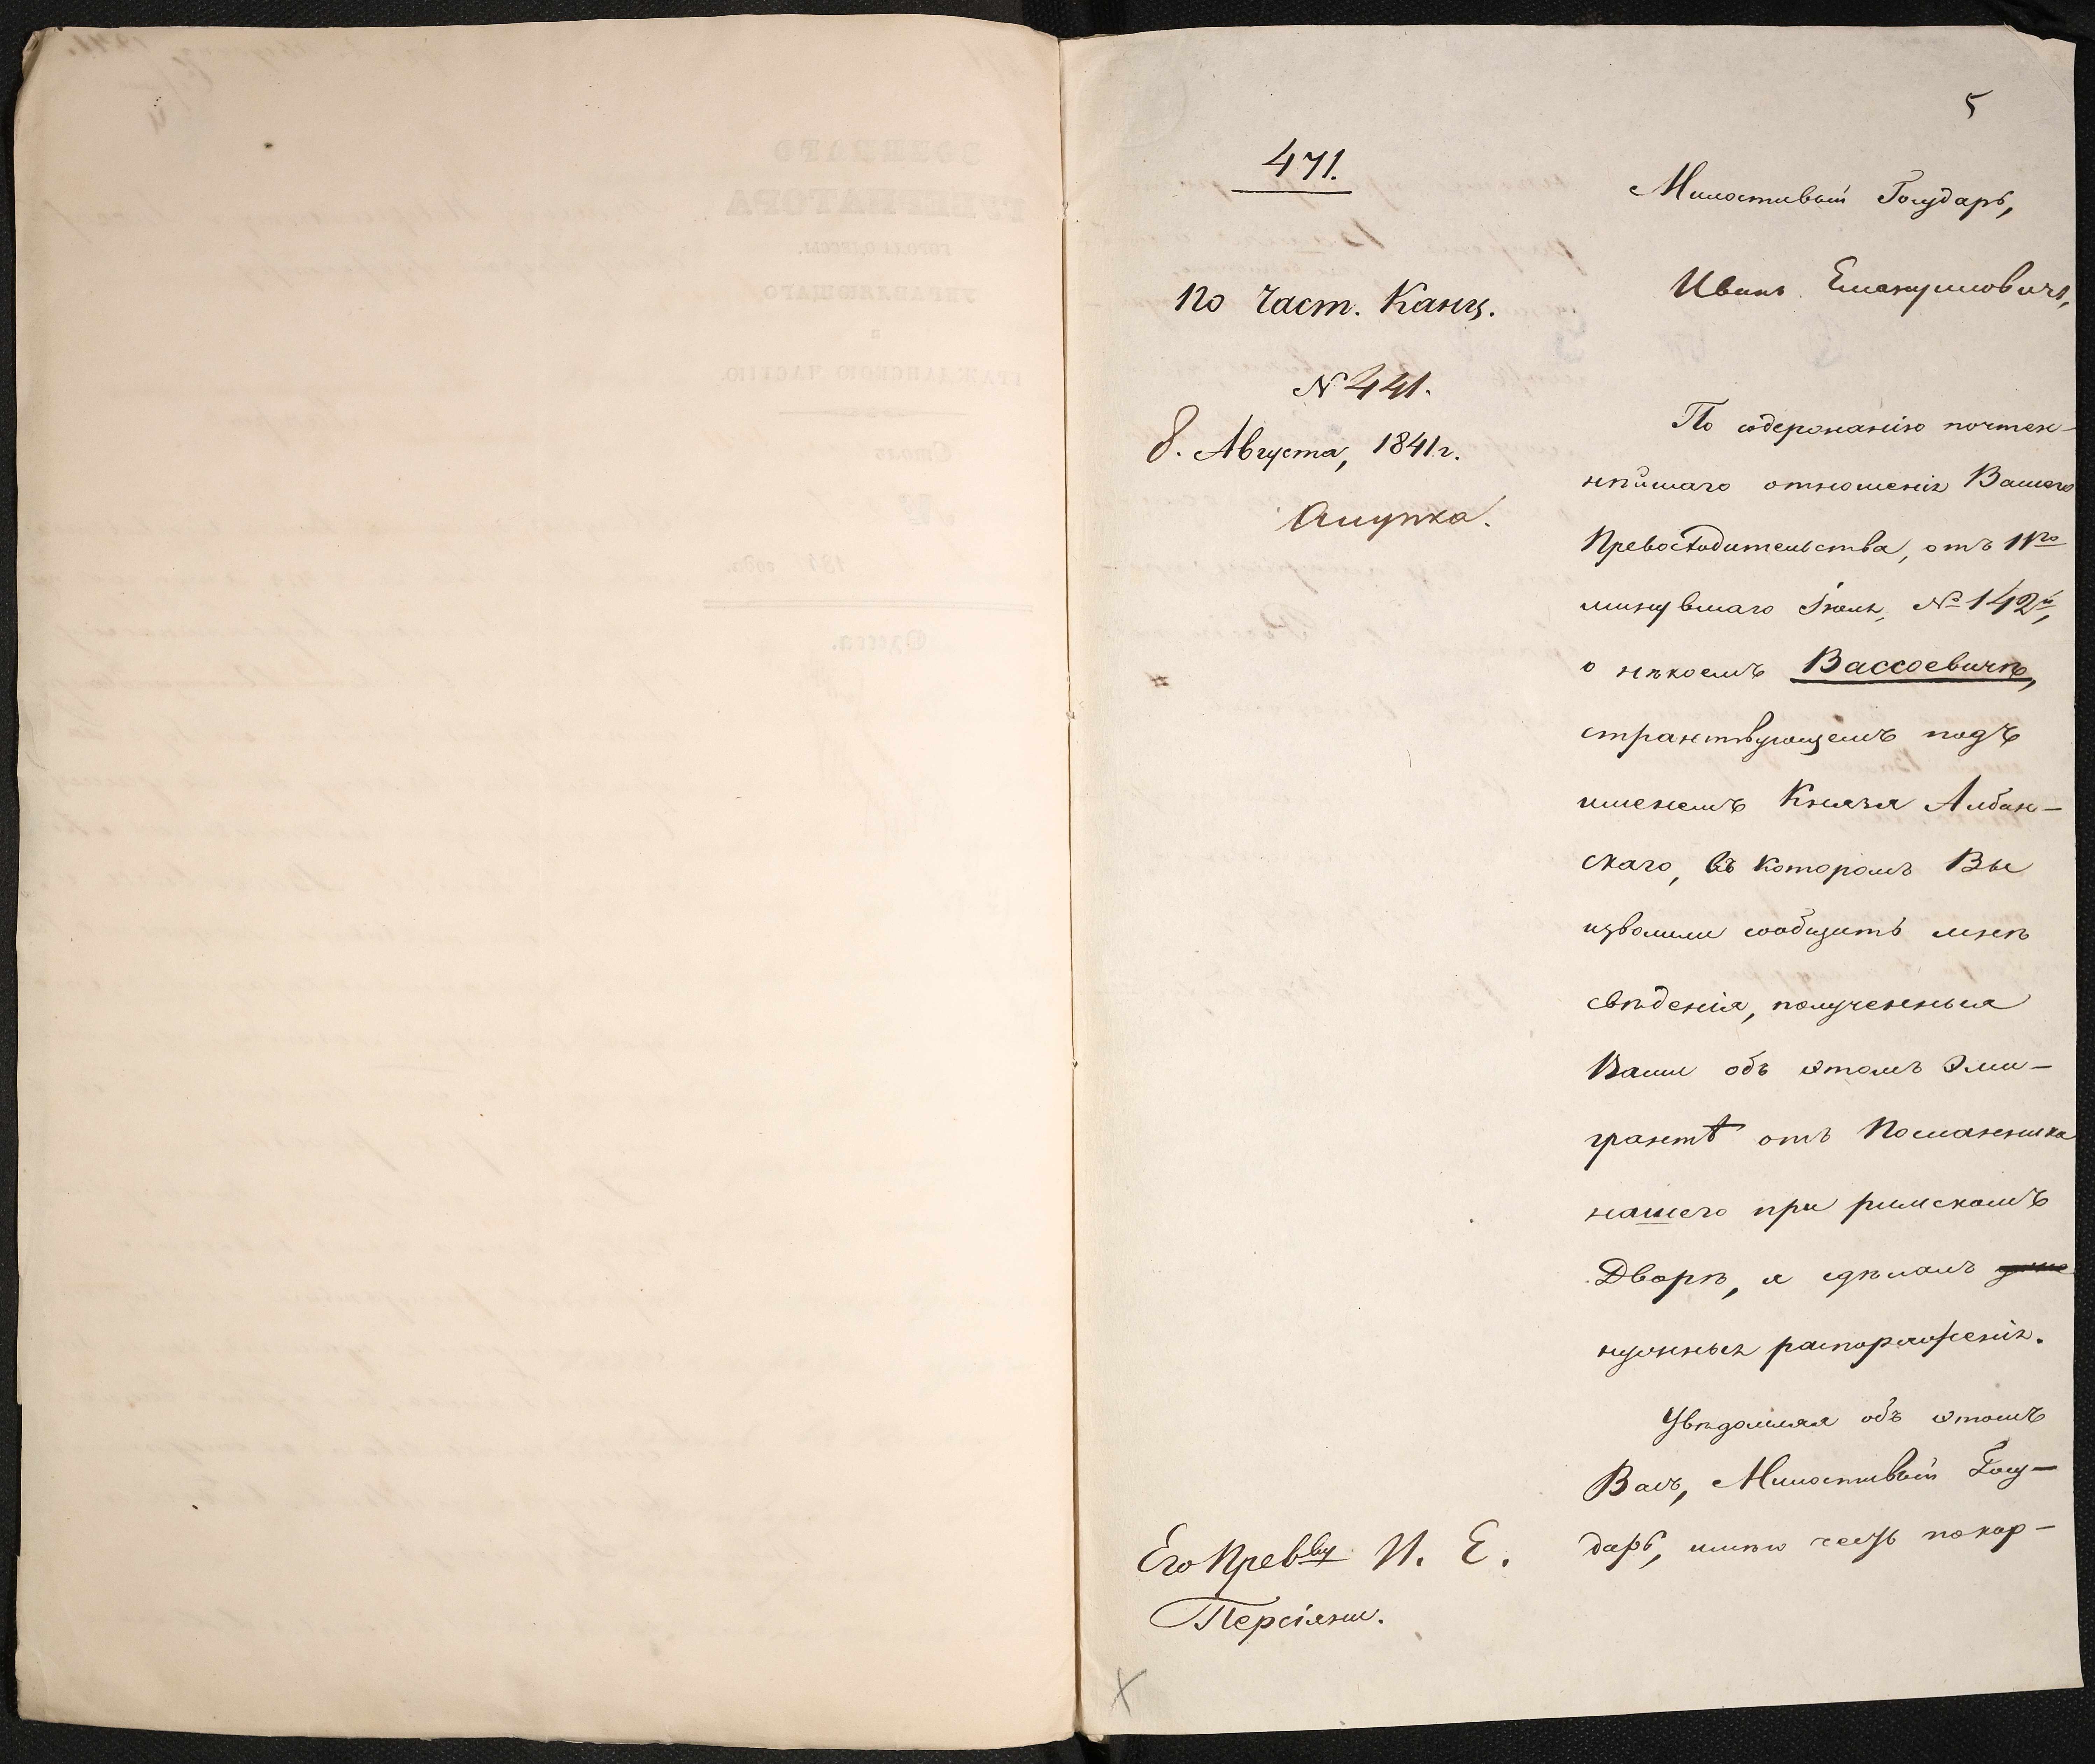 5
471.
По част. Канц.
№ 441.
8. Августа, 1841 г.
Алупка.
Милостивый Государь,
Иванъ Емануиловичъ,
По содержанію почтен-
нѣйшаго отношенія Вашего
Превосходительства, отъ 11го
минувшаго Іюля, № 142й,
о нѣкоемъ Вассоевичѣ,
странствующемъ подъ
именемъ Князя Албан-
скаго, въ которомъ Вы
изволили сообщить мнѣ
свѣденія, полученныя
Вами объ этомъ эми-
грантѣ отъ Посланника
нашего при римскомъ
Дворѣ, я сдѣлалъ
нужныя распоряженія.
Увѣдомляя объ этомъ
Васъ, Милостивый Госу-
дарь, имѣю честь покор-
Его Прев-ву И. Е.
Персіяни.